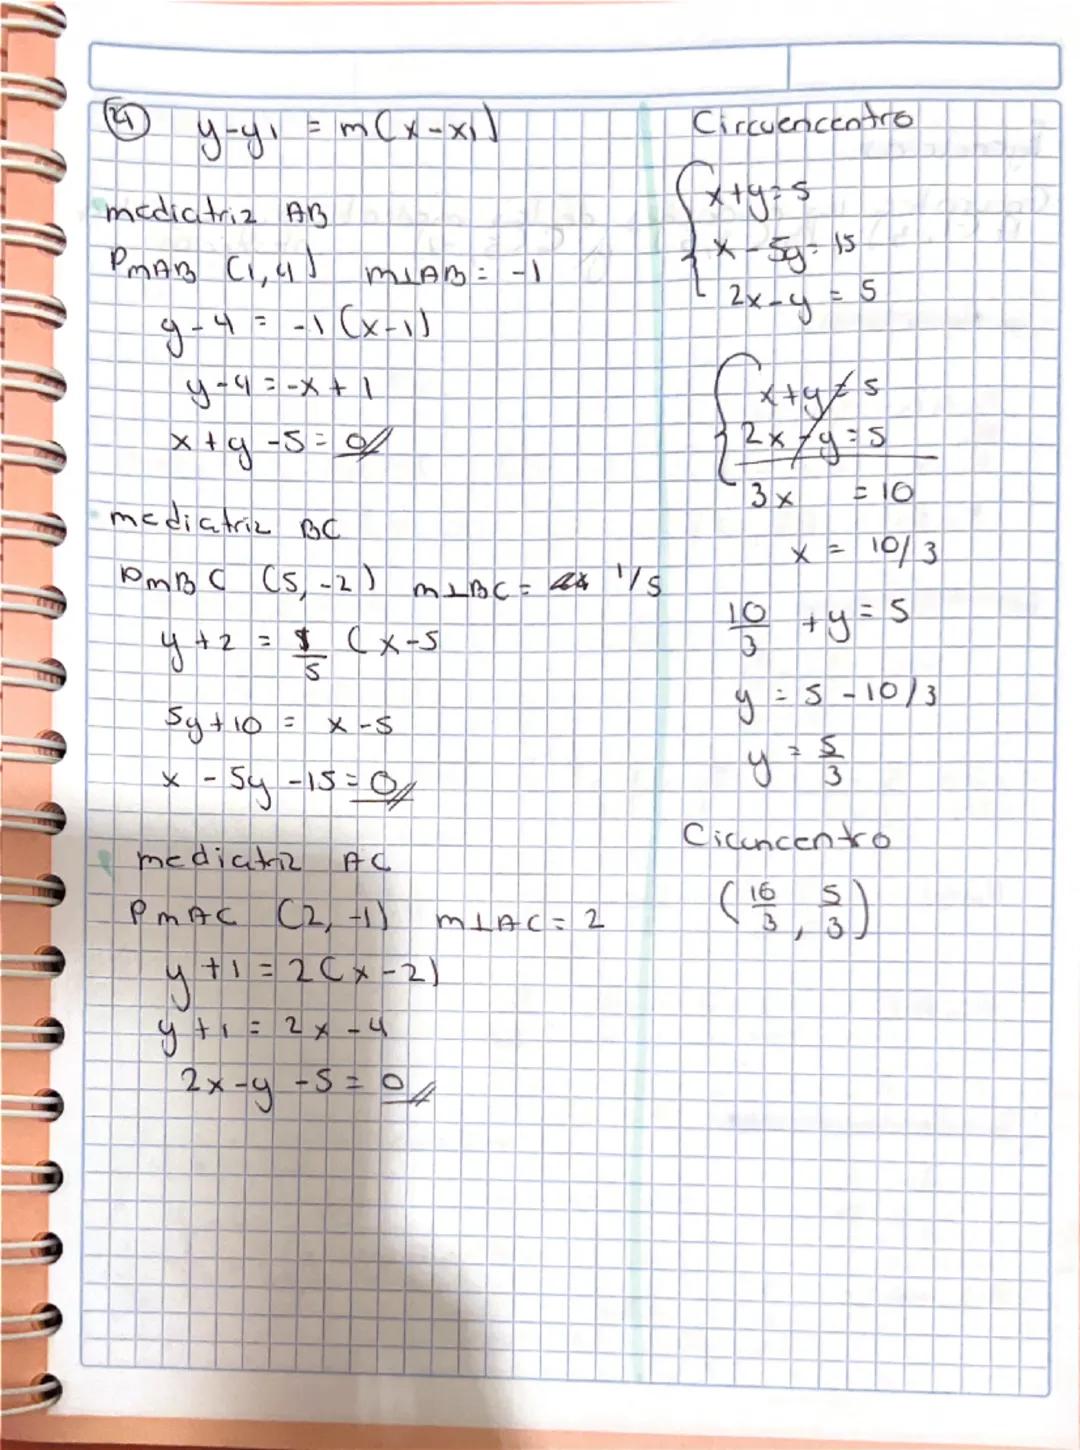 24
y-y1 = m(x-x1)
mediatriz AB
PmAB (1,4) m⊥AB = -1
y-4 = -1(x-1)
y-4=-x+1
x+y-5=0
mediatriz BC
PmBC (5,-2) m⊥BC = 1/5
y+2 = 1/5 (x-5
5y+10 = x-5
x-5y-15=0
mediatriz AC
PmAC (2,-1) m⊥AC=2
y+1=2(x-2)
y+1=2x-4
2x-y-5=0
Circuencentro
x+y=5
x-5y=15
2x-y=5
x+y=5
2x-y=5
3x =10
x = 10/3
10/3 +y=5
y=5-10/3
y=5/3
Cicuncentro
(16/3, 5/3)